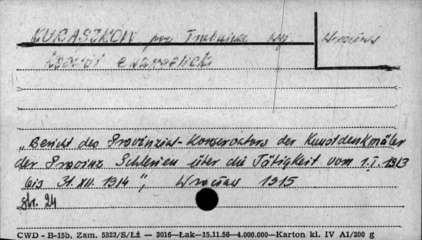 kościół ewangelicki
"Bericht des Provinzial-Konservators der Kunstdenkmäler
der Provinz Schlesien über die Tätigkeit vom 1.I.1913
bis 31.XII.1914", Wrocław 1915
Str. 24
CWD - B-15b. Zam. 5823/S/Łż — 3016—Łak—15.11.56—4.000.000—Karton kl. IV A1/200 g